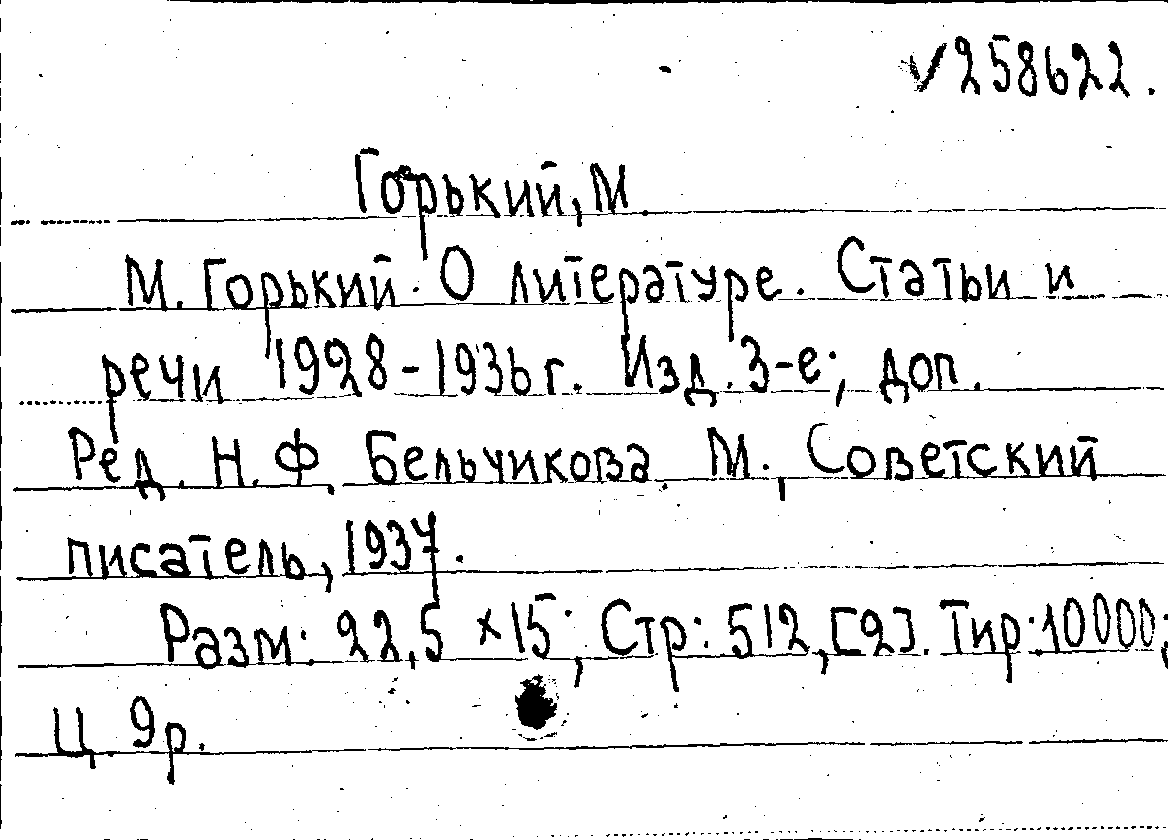 √258622.
Горький, М.
М. Горький. О литературе. Статьи и
речи 1928-1936 г. Изд. 3-е; доп.
Ред. Н. Ф. Бельчикова. М., Советский
писатель, 1937.
Разм: 22,5 x 15; Стр: 512, [2]. Тир: 10000;
Ц. 9 р.